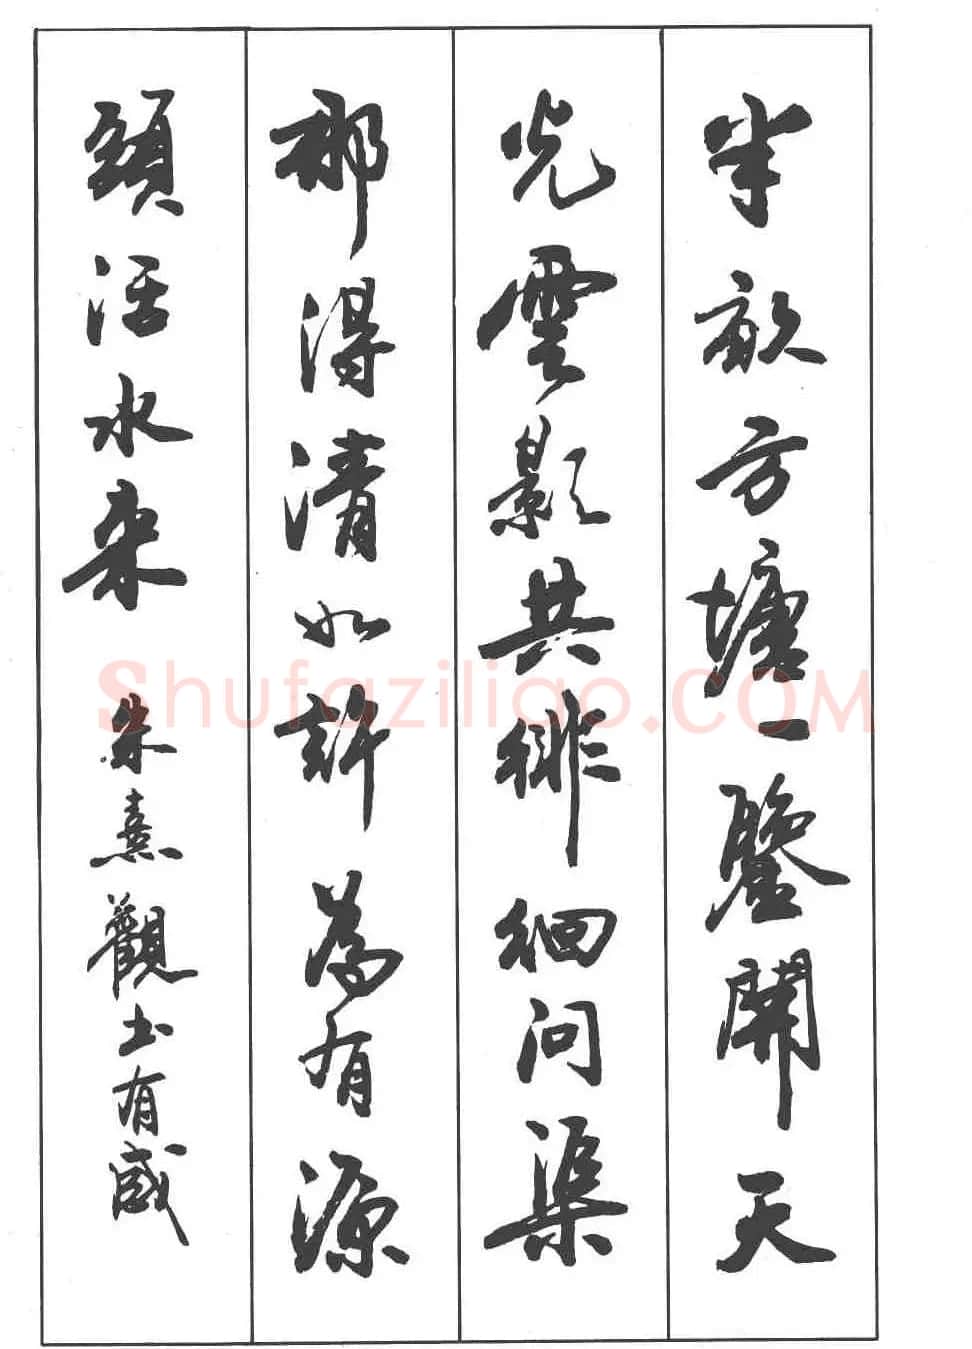 半畝方塘一鑒開天
光雲影共徘徊問渠
那得清如許為有源
頭活水来 朱熹觀书有感
Shufaziliao.COM